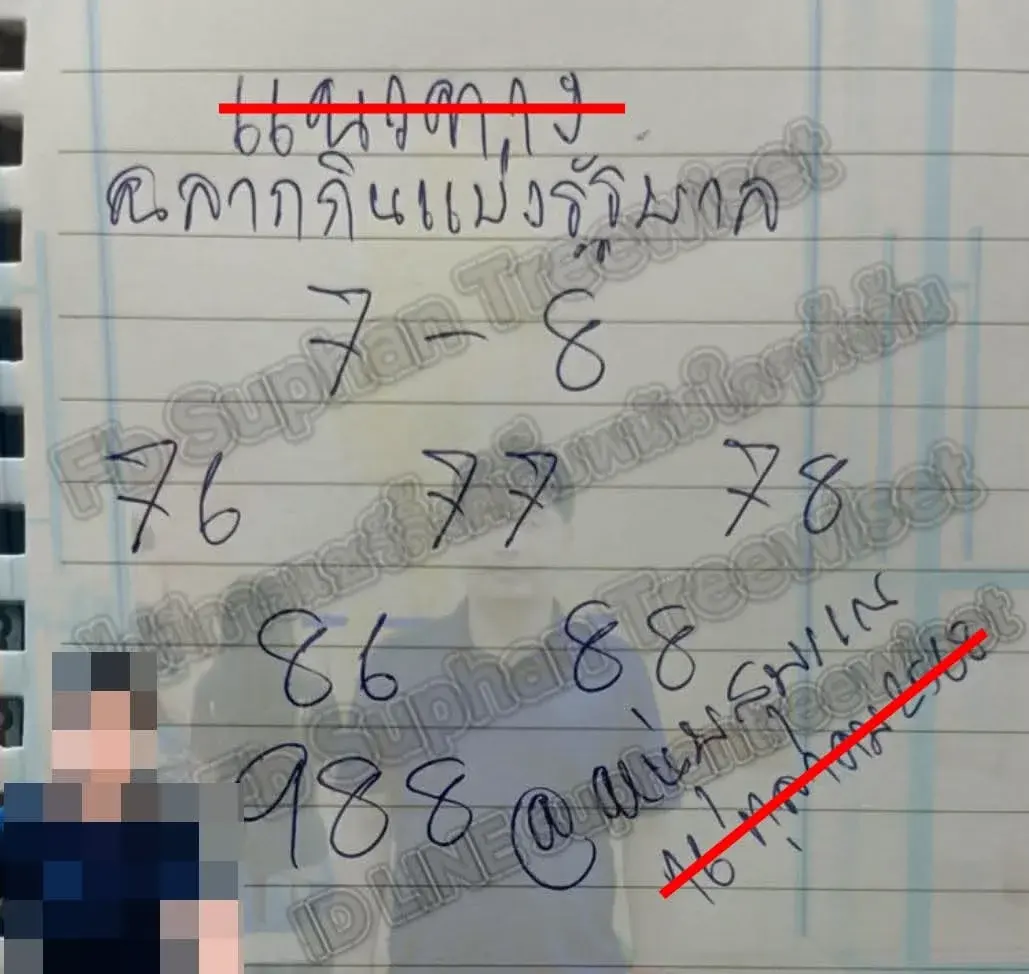 แนวทาง
ฉลากกินแบ่งรัฐบาล
7 - 8
76 77 78
86 88
988 @
16 ตุลาคม 2568
Fb Suphan Treewiset
Fb Suphan Treewiset
ID LINE@suphantreewiset